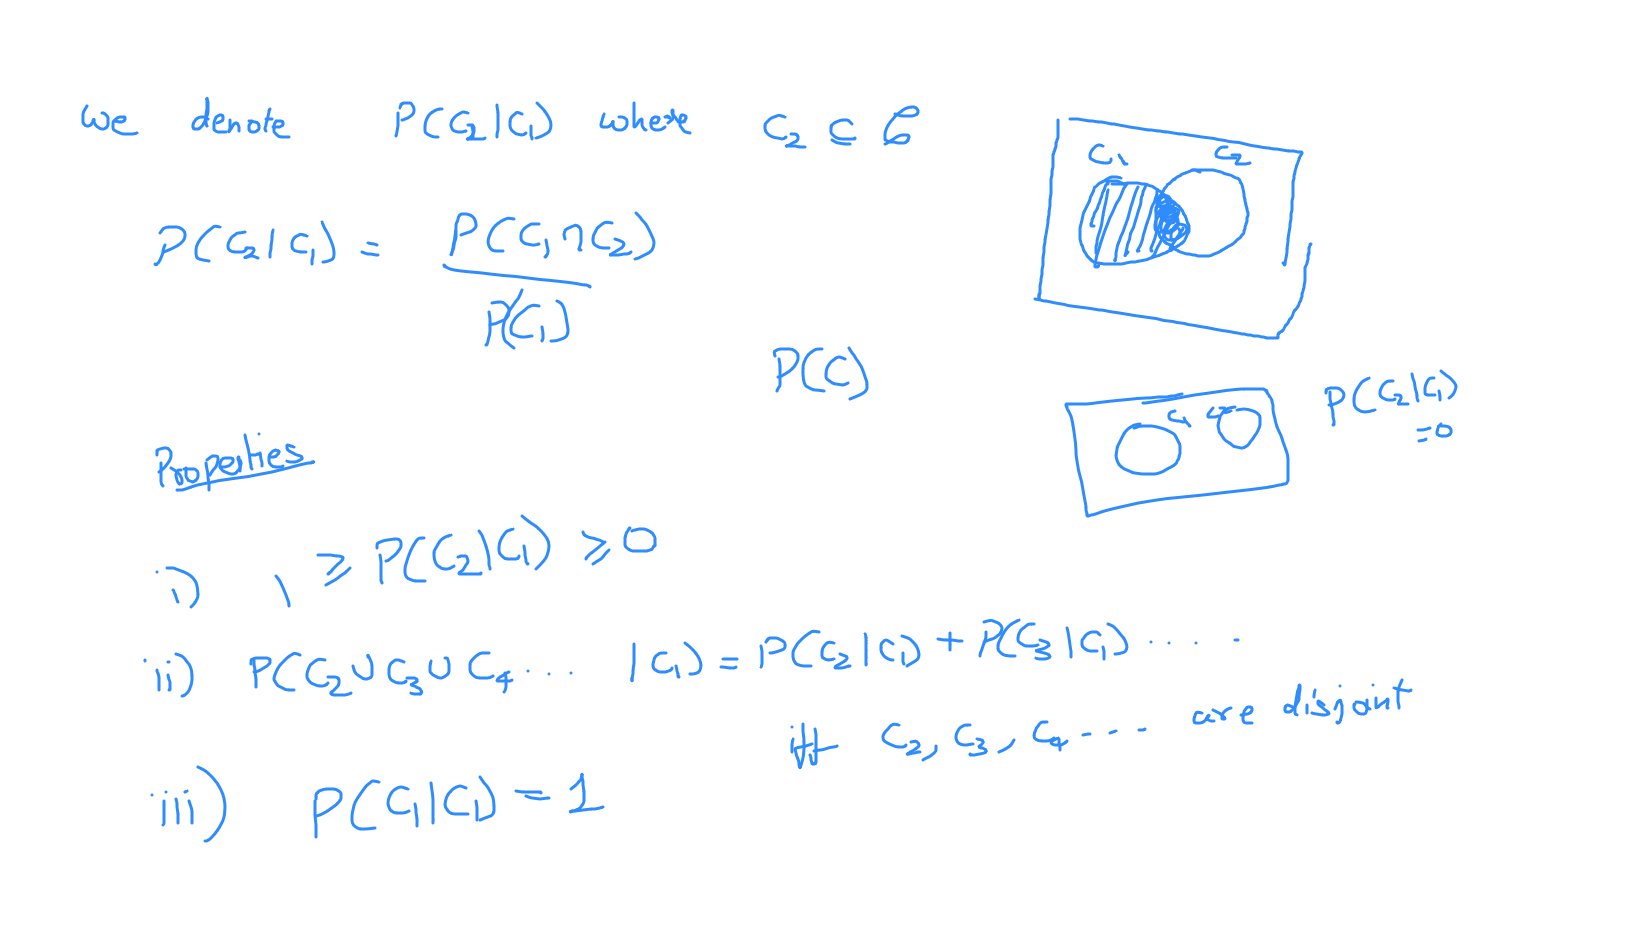 we denote P(C₂|C₁) where C₂ ⊆ 𝒞
C₁ C₂
P(C₂|C₁) = P(C₁∩C₂) / P(C₁)
P(C)
C₁ C₂
P(C₂|C₁) = 0
Properties
i) 1 ≥ P(C₂|C₁) ≥ 0
ii) P(C₂∪C₃∪C₄... |C₁) = P(C₂|C₁) + P(C₃|C₁) .....
iff C₂, C₃, C₄ ... are disjoint
iii) P(C₁|C₁) = 1